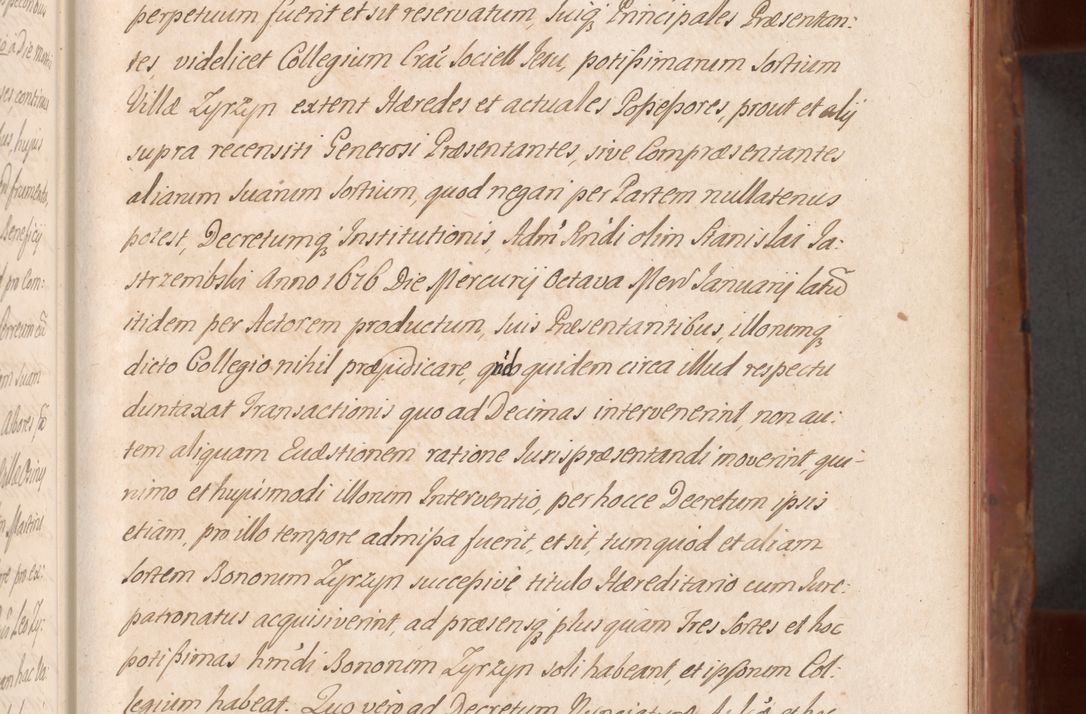 perpetuum fuerit et sit reservatum, suiq́ Principales Præsentan:
tes, videlicet Collegium Crać Societt Jesu, potißimarum Sortium
Villæ Zyrzyn extent Hæredes et actuales Poßeßores, prout et alij
supra recensiti Generosi Præsentantes, sive Compræsentantes
aliarum Suarum Sortium, quod negari per Partem nullatenus
potest, Decretumq́ Institutionis, Adm̃ Rńdi olim Stanislai Ja:
strzembski Anno 1676 Die Mercurij Octava Mens̃ Januarij latũ
itidem per Actorem productum, suis Præsentantibus, illorumq́
dicto Collegio nihil præjudicare, quidquidem circa illud respectu
duntaxat Transactionis quo ad Decimas intervenerint, non au:
tem aliquam Quæstionem ratione Jurispræsentandi moverint, qui-
nimo et hujusmodi illorum Interventio, per hocce Decretum ipsis
etiam, pro illo tempore admißa fuerit, et sit, tum quod et aliam
Sortem Bonorum Zyrzyn succeßivè titulo Hæreditario cum Jure-
patronatus acquisiverint, ad præsensq́ plusquam Tres Sortes et hoc
potißimas hm̃di Bonorum Zyrzyn soli habeant, et ipsorum Col:
legium habeat. Quo verò ad Decretum
perpetuus
à Die mortis
continuo
hujus
frumento,
Beneficij
pro Com:
suam
Martini
pro ex: